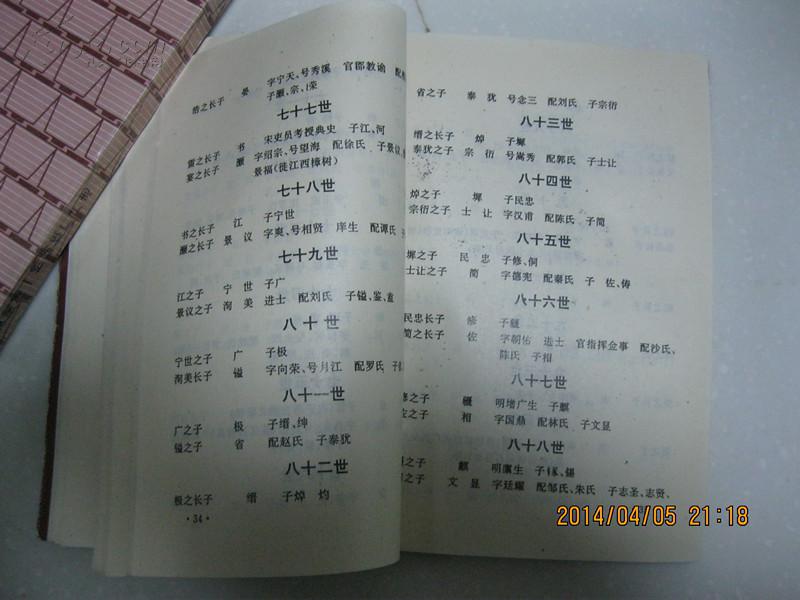 皓之长子 晏 字宁天、号秀溪 官郡教谕 配
子灏、宗、荣
七十七世
雷之长子 书 宋吏员考授典史 子江、河
宴之长子 灏 字绍宗、号望海 配徐氏 子景议、
景福(徙江西樟树)
七十八世
书之长子 江 子宁世
灏之长子 景 议 字爽、号相贤 庠生 配谭氏 子
七十九世
江之子 宁 世 子广
景议之子 洵 美 进士 配刘氏 子镒、鉴、
八十世
宁世之子 广 子极
洵美长子 镒 字向荣、号月江 配罗氏 子
八十一世
广之子 极 子缙、绅
镒之子 省 配赵氏 子泰犹
八十二世
极之长子 缙 子焯 灼
·34·
省之子 泰 犹 号念三 配刘氏 子宗衍
八十三世
缙之长子 焯 子墀
泰犹之子 宗 衍 号嵩秀 配郭氏 子士让
八十四世
焯之子 墀 子民忠
宗衍之子 士 让 字汉甫 配陈氏 子简
八十五世
墀之子 民 忠 子修、侗
士让之子 简 字德宪 配秦氏 子 佐、俦
八十六世
民忠长子 修 子
简之长子 佐 字朝佑 进士 官指挥佥事 配沙氏、
陈氏 子相
八十七世
修之子 明增广生 子麒
佐之子 相 字国鼎 配林氏 子文显
八十八世
之子 麒 明廪生 子 、锡
之子 文 显 字廷耀 配邹氏、朱氏 子志圣、志贤、
2014/04/05 21:18